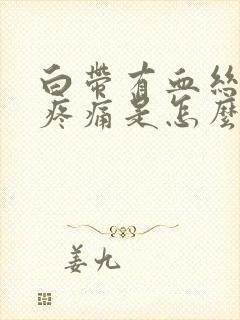 白带有血絲
疼痛是怎麼
姜九